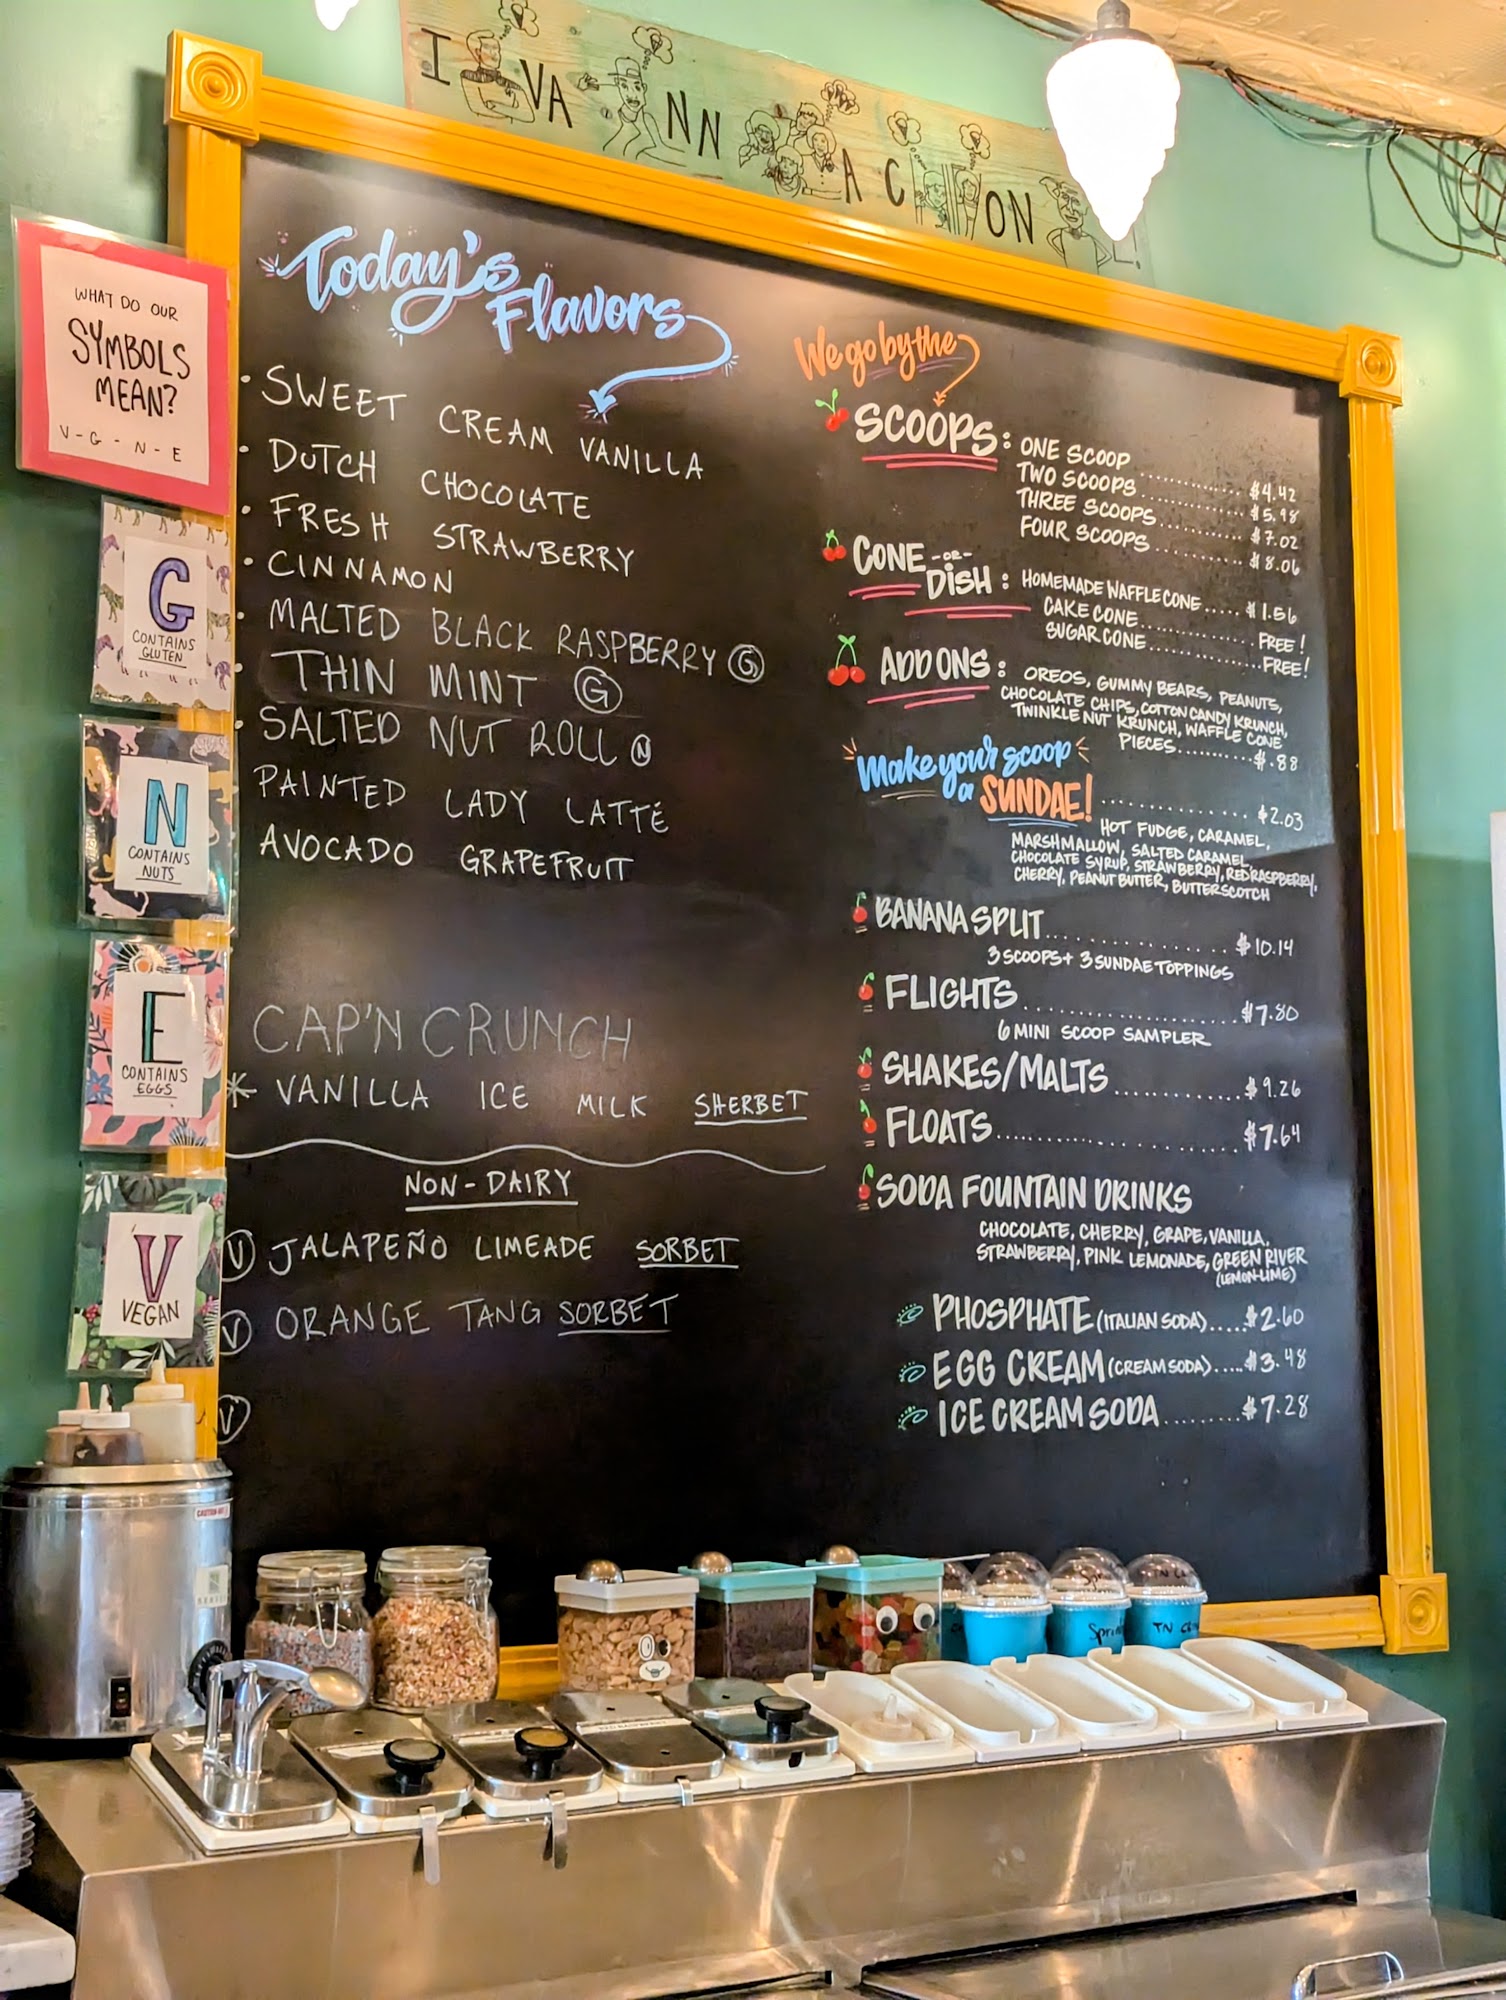 I VA NN A C ON E!
WHAT DO OUR
SYMBOLS
MEAN?
V - G - N - E
G
CONTAINS
GLUTEN
N
CONTAINS
NUTS
E
CONTAINS
EGGS
V
VEGAN
Today's
Flavors
• SWEET CREAM VANILLA
• DUTCH CHOCOLATE
• FRESH STRAWBERRY
• CINNAMON
• MALTED BLACK RASPBERRY G
• THIN MINT G
• SALTED NUT ROLL N
PAINTED LADY LATTÉ
AVOCADO GRAPEFRUIT
CAP'N CRUNCH
* VANILLA ICE MILK SHERBET
NON-DAIRY
V JALAPEÑO LIMEADE SORBET
V ORANGE TANG SORBET
V
We go by the
SCOOPS: ONE SCOOP $4.42
TWO SCOOPS $5.98
THREE SCOOPS $7.02
FOUR SCOOPS $8.06
CONE -OR- DISH: HOMEMADE WAFFLE CONE $1.56
CAKE CONE FREE!
SUGAR CONE FREE!
ADD ONS: OREOS, GUMMY BEARS, PEANUTS,
CHOCOLATE CHIPS, COTTON CANDY KRUNCH,
TWINKLE NUT KRUNCH, WAFFLE CONE
PIECES $.88
Make your scoop
a SUNDAE! $2.03
HOT FUDGE, CARAMEL,
MARSHMALLOW, SALTED CARAMEL,
CHOCOLATE SYRUP, STRAWBERRY, RED RASPBERRY,
CHERRY, PEANUT BUTTER, BUTTERSCOTCH
BANANA SPLIT $10.14
3 SCOOPS + 3 SUNDAE TOPPINGS
FLIGHTS $7.80
6 MINI SCOOP SAMPLER
SHAKES/MALTS $9.26
FLOATS $7.64
SODA FOUNTAIN DRINKS
CHOCOLATE, CHERRY, GRAPE, VANILLA,
STRAWBERRY, PINK LEMONADE, GREEN RIVER
(LEMON-LIME)
PHOSPHATE (ITALIAN SODA) $2.60
EGG CREAM (CREAM SODA) $3.48
ICE CREAM SODA $7.28